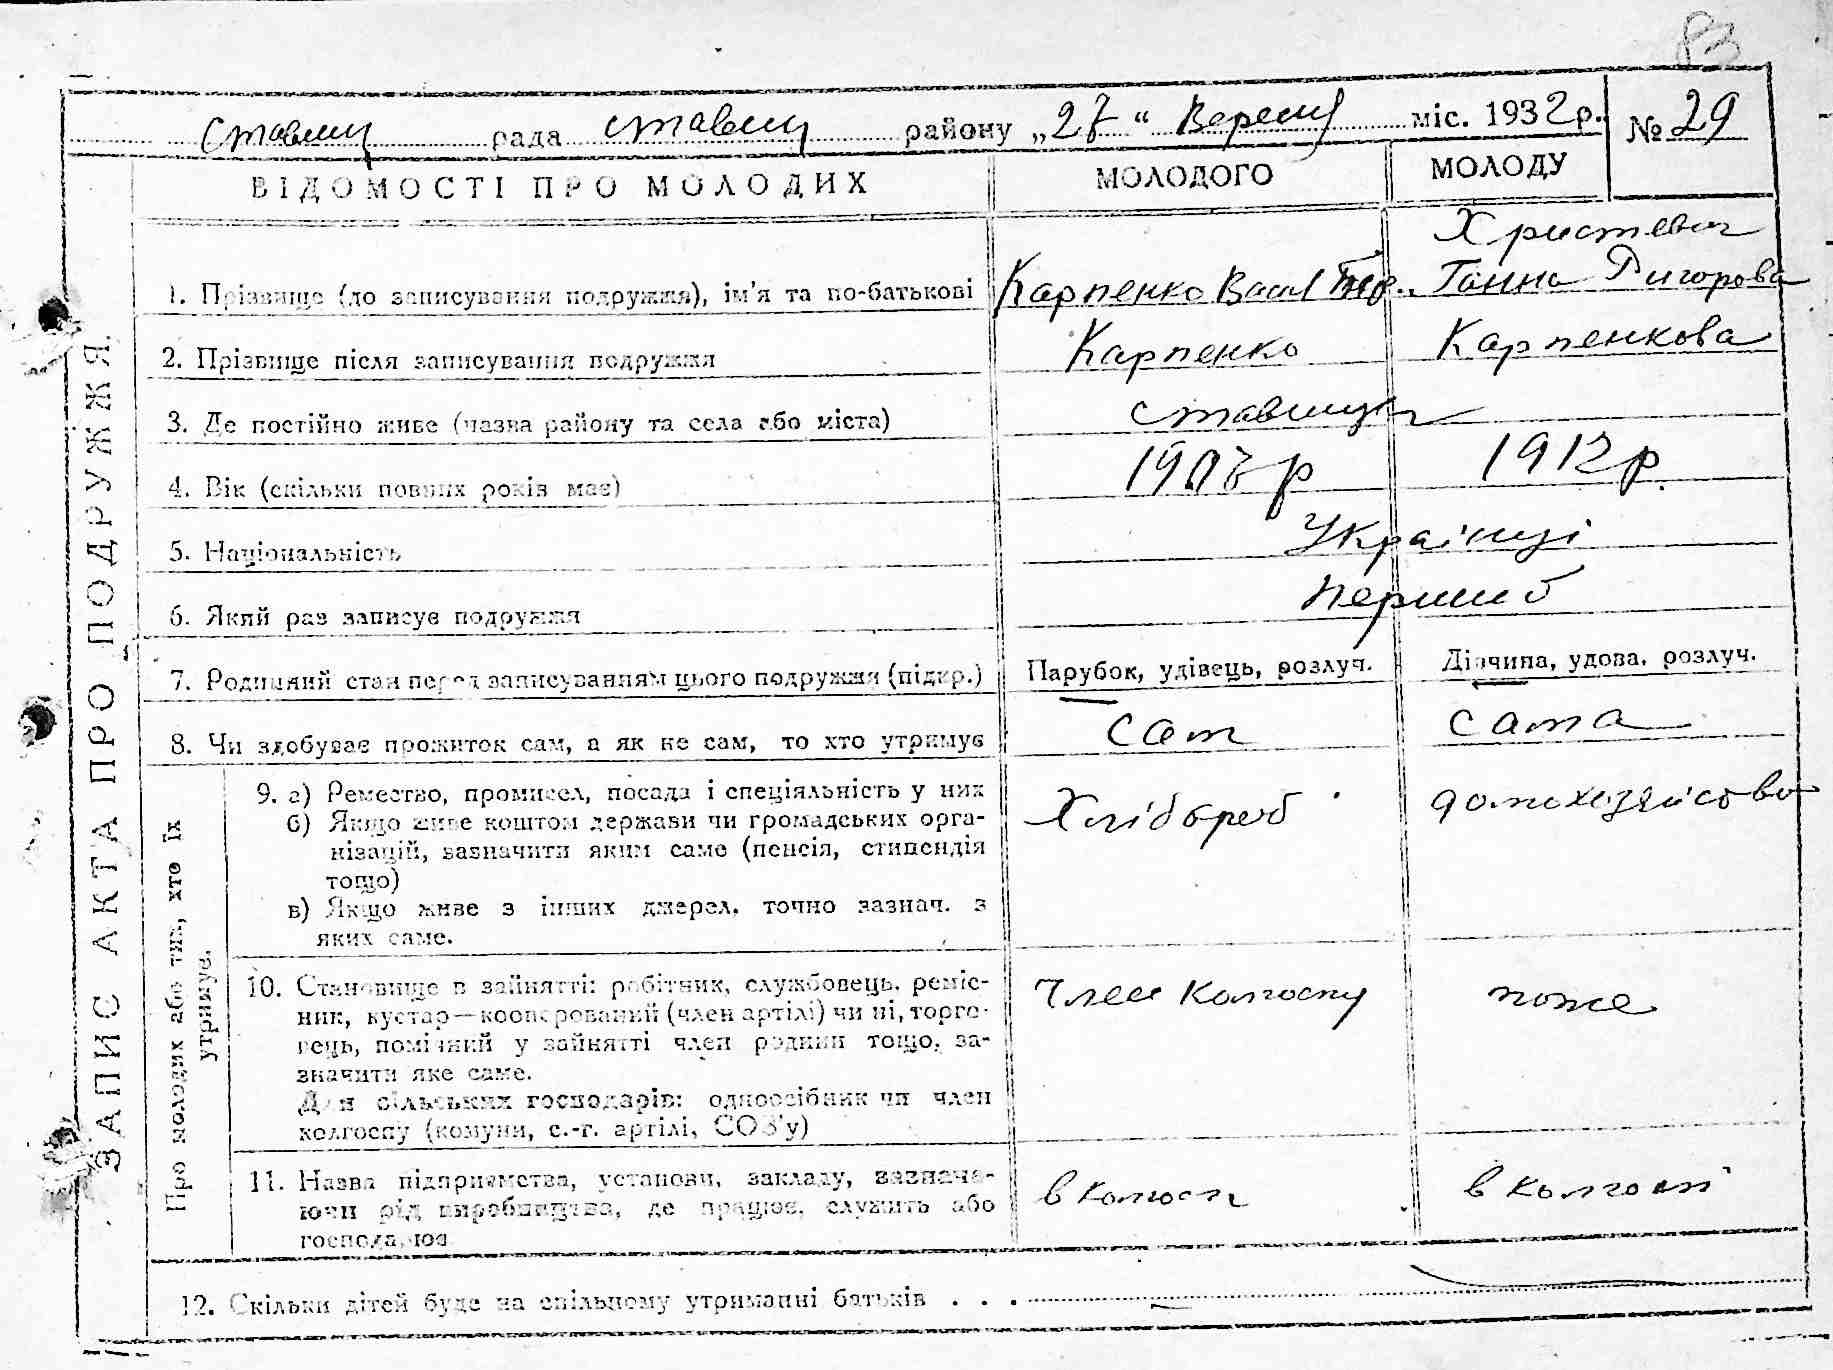 83
Ставищ рада Ставищ району „27“ Вересня міс. 1932 р. № 29
ЗАПИС АКТА ПРО ПОДРУЖЖЯ.
ВІДОМОСТІ ПРО МОЛОДИХ МОЛОДОГО МОЛОДУ
Христевич
1. Прізвище (до записування подружжя), ім'я та по-батькові Карпенко Васил Ганна Ригорова
2. Прізвище після записування подружжя Карпенко Карпенкова
3. Де постійно живе (назва району та села або міста) Ставища
4. Вік (скільки повних років має) р 1912 р.
5. Національність Українці
6. Який раз записує подружжя Перший
7. Родинний стан перед записуванням цього подружжя (підкр.) Парубок, удівець, розлуч. Дівчина, удова, розлуч.
8. Чи здобуває прожиток сам, а як не сам, то хто утримує сам сама
Про молодих або тих, хто їх утримує.
9. а) Ремество, промисел, посада і спеціяльність у них Хлібороб домохозяйство
б) Якщо живе коштом держави чи громадських орга-
нізацій, зазначити яким саме (пенсія, стипендія
тощо)
в) Якщо живе з інших джерел, точно зазнач. з
яких саме.
10. Становище в зайнятті: робітник, службовець, реміс- Член колгоспу тоже
ник, кустар—кооперований (член артілі) чи ні, торго-
вець, помічний у зайнятті член родини тощо, за-
значити яке саме.
Для сільських господарів: одноосібник чи член
колгоспу (комуни, с.-г. артілі, СОЗ'у)
11. Назва підприємства, установи, закладу, зазнача- в колгосп в колгоспі
ючи рід виробництва, де працює, служить або
господарює
12. Скільки дітей буде на спільному утриманні батьків . . .